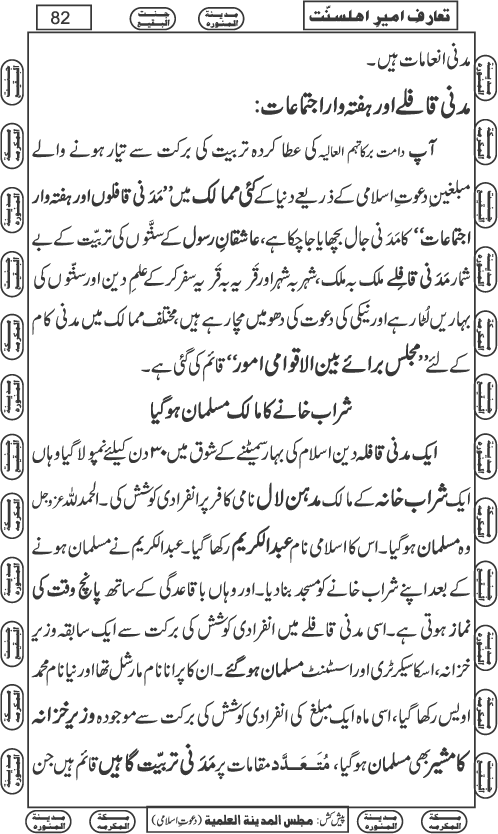 تعارف امیرِ اهلسنّت
مدینة المنوره
جنت البقیع
82
مدنی انعامات ہیں۔
مدنی قافلے اور ہفتہ وار اجتماعات:
آپ دامت برکاتہم العالیہ کی عطا کردہ تربیت کی برکت سے تیار ہونے والے
مبلغینِ دعوتِ اسلامی کے ذریعے دنیا کے کئی ممالک میں ’’مَدَنی قافلوں اور ہفتہ وار
اجتماعات‘‘ کا مَدَنی جال بچھایا جا چکا ہے، عاشقانِ رسول کے سنّتوں کی تربیّت کے بے
شمار مَدَنی قافِلے ملک بہ ملک، شہر بہ شہر اور قَریہ بہ قریہ سفر کر کے علمِ دین اور سنّتوں کی
بہاریں لُٹا رہے اور نیکی کی دعوت کی دھومیں مچا رہے ہیں، مختلف ممالک میں مدنی کام
کے لئے ’’مجلس برائے بین الاقوامی امور‘‘ قائم کی گئی ہے۔
شراب خانے کا مالک مسلمان ہوگیا
ایک مدنی قافلہ دین اسلام کی بہار سمیٹنے کے شوق میں ۳۰ دن کیلئے نمپولا گیا وہاں
ایک شراب خانہ کے مالک مدہن لال نامی کافر پر انفرادی کوشش کی۔ الحمدللہ عزوجل
وہ مسلمان ہوگیا۔ اس کا اسلامی نام عبدالکریم رکھا گیا۔ عبدالکریم نے مسلمان ہونے
کے بعد اپنے شراب خانے کو مسجد بنا دیا۔ اور وہاں باقاعدگی کے ساتھ پانچ وقت کی
نماز ہوتی ہے۔ اسی مدنی قافلے میں انفرادی کوشش کی برکت سے ایک سابقہ وزیر
خزانہ، اسکا سیکرٹری اور اسسٹنٹ مسلمان ہوگئے۔ ان کا پرانا نام مارشل تھا اور نیا نام محمد
اویس رکھا گیا، اسی ماہ ایک مبلغ کی انفرادی کوشش کی برکت سے موجودہ وزیر خزانہ
کا مشیر بھی مسلمان ہوگیا، مُتَعَدَّد مقامات پر مَدَنی تربیّت گاہیں قائم ہیں جن
مدینة المنوره
مكة المكرمه
پیش کش: مجلس المدینة العلمیة (دعوتِ اسلامی)
مدینة المنوره
مكة المكرمه